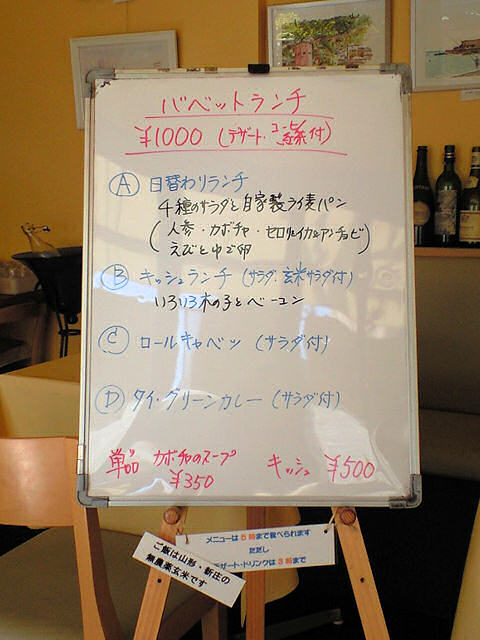 バベットランチ
¥1000 (デザート・コーヒー紅茶付)
Ⓐ 日替わりランチ
4種のサラダと自家製ライ麦パン
(人参・カボチャ・セロリとイカのアンチョビ)
えびとゆで卵
Ⓑ キッシュランチ (サラダ・玄米サラダ付)
いろいろ木の子とベーコン
Ⓒ ロールキャベツ (サラダ付)
Ⓓ タイ・グリーンカレー (サラダ付)
単品 カボチャのスープ キッシュ ¥500
¥350
メニューは5時まで食べられます
ただし
デザート・ドリンクは3時まで
ご飯は山形・新庄の
無農薬玄米です